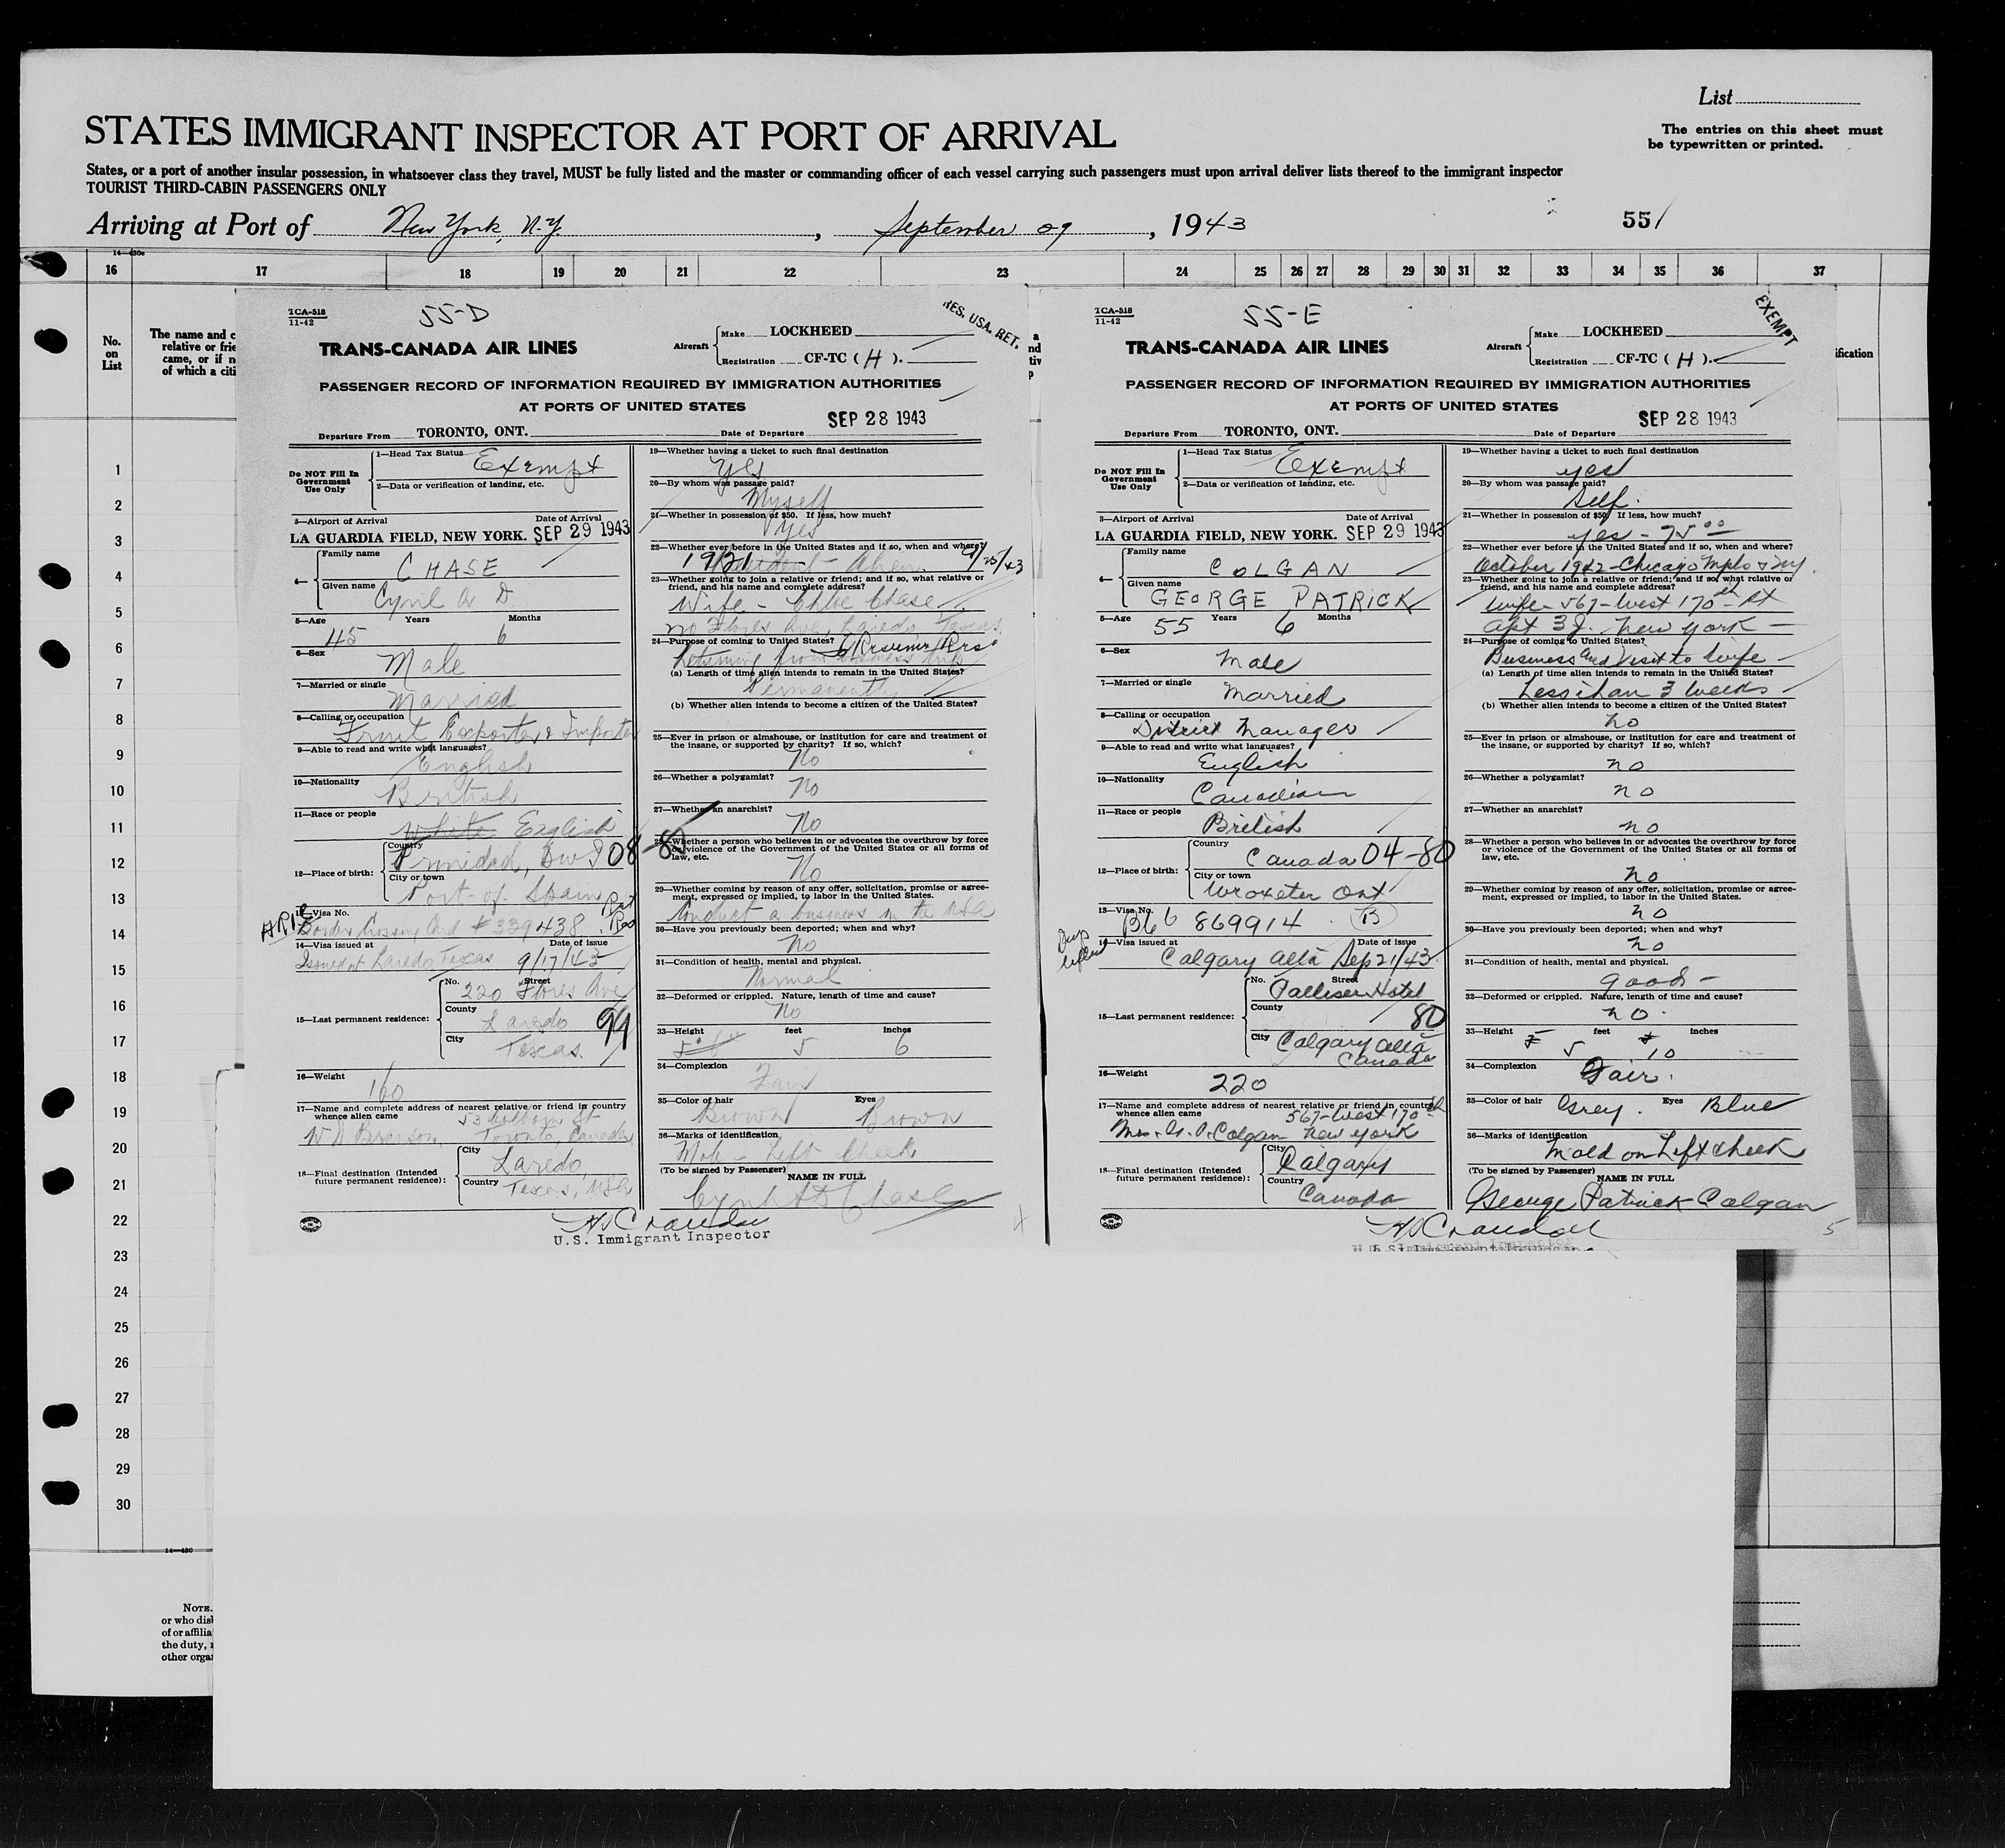 List
STATES IMMIGRANT INSPECTOR AT PORT OF ARRIVAL
The entries on this sheet must
be typewritten or printed.
States, or a port of another insular possession, in whatsoever class they travel, MUST be fully listed and the master or commanding officer of each vessel carrying such passengers must upon arrival deliver lists thereof to the immigrant inspector
TOURIST THIRD-CABIN PASSENGERS ONLY
Arriving at Port of New York, N.Y. , September 29 , 1943
551
14—430c
16 17 18 19 20 21 22 23 24 25 26 27 28 29 30 31 32 33 34 35 36 37
No.
on
List
The name and c
relative or frie
came, or if n
of which a citi
ification
1
2
3
4
5
6
7
8
9
10
11
12
13
14
15
16
17
18
19
20
21
22
23
24
25
26
27
28
29
30
14—430
NOTE.
or who disb
of or affilia
the duty,
other orga
TCA-518
11-42
55-D
RES. USA. RET.
TRANS-CANADA AIR LINES
Aircraft
Make LOCKHEED
Registration CF-TC ( H ).
PASSENGER RECORD OF INFORMATION REQUIRED BY IMMIGRATION AUTHORITIES
AT PORTS OF UNITED STATES
SEP 28 1943
Departure From TORONTO, ONT. Date of Departure
Do NOT Fill In
Government
Use Only
1—Head Tax Status Exempt
2—Data or verification of landing, etc.
3—Airport of Arrival Date of Arrival
LA GUARDIA FIELD, NEW YORK. SEP 29 1943
4—
Family name
CHASE
Given name
Cyril A D
5—Age 45 Years 6 Months
6—Sex
Male
7—Married or single
Married
8—Calling or occupation
Fruit Exporter & Importer
9—Able to read and write what languages?
English
10—Nationality
British
11—Race or people
White English
12—Place of birth:
Country
Trinidad, BWI 08-80
City or town
Port-of-Spain
13—Visa No.
Border Crossing Card # 339438
14—Visa issued at Date of issue
Issued at Laredo Texas 9/17/43
15—Last permanent residence:
No. Street
220 Flores Ave
County
Laredo 99
City
Texas.
16—Weight
160
17—Name and complete address of nearest relative or friend in country
whence alien came
Toronto, Canada
18—Final destination (Intended
future permanent residence):
City
Laredo,
Country
Texas, USA
19—Whether having a ticket to such final destination
Yes
20—By whom was passage paid?
Myself
21—Whether in possession of $50. If less, how much?
Yes
22—Whether ever before in the United States and if so, when and where?
1921
23—Whether going to join a relative or friend; and if so, what relative or
friend, and his name and complete address?
Wife - Chloe Chase
Flores Ave, Laredo, Texas
24—Purpose of coming to United States?
Returning from business trip
(a) Length of time alien intends to remain in the United States?
Permanently
(b) Whether alien intends to become a citizen of the United States?
25—Ever in prison or almshouse, or institution for care and treatment of
the insane, or supported by charity? If so, which?
No
26—Whether a polygamist?
No
27—Whether an anarchist?
No
28—Whether a person who believes in or advocates the overthrow by force
or violence of the Government of the United States or all forms of
law, etc.
No
29—Whether coming by reason of any offer, solicitation, promise or agree-
ment, expressed or implied, to labor in the United States.
Conduct a business in the USA
30—Have you previously been deported; when and why?
No
31—Condition of health, mental and physical.
Normal
32—Deformed or crippled. Nature, length of time and cause?
No
33—Height feet inches
5 6
34—Complexion
Fair
35—Color of hair Eyes
Brown Brown
36—Marks of identification
Mole - Left Cheek
(To be signed by Passenger)
NAME IN FULL
Cyril A D Chase
U.S. Immigrant Inspector
TCA-518
11-42
55-E
EXEMPT
TRANS-CANADA AIR LINES
Aircraft
Make LOCKHEED
Registration CF-TC ( H ).
PASSENGER RECORD OF INFORMATION REQUIRED BY IMMIGRATION AUTHORITIES
AT PORTS OF UNITED STATES
SEP 28 1943
Departure From TORONTO, ONT. Date of Departure
Do NOT Fill In
Government
Use Only
1—Head Tax Status Exempt
2—Data or verification of landing, etc.
3—Airport of Arrival Date of Arrival
LA GUARDIA FIELD, NEW YORK. SEP 29 1943
4—
Family name
COLGAN
Given name
GEORGE PATRICK
5—Age 55 Years 6 Months
6—Sex
Male
7—Married or single
Married
8—Calling or occupation
District Manager
9—Able to read and write what languages?
English
10—Nationality
Canadian
11—Race or people
British
12—Place of birth:
Country
Canada 04-80
City or town
Wroxeter Ont
13—Visa No.
B66 869914 B
14—Visa issued at Date of issue
Calgary Alta Sep 21/43
15—Last permanent residence:
No. Street
Palliser Hotel
County
80
City
Calgary Alta
Canada
16—Weight
220
17—Name and complete address of nearest relative or friend in country
whence alien came
567-West 170th
Mrs. G. P. Colgan New York
18—Final destination (Intended
future permanent residence):
City
Calgary
Country
Canada
19—Whether having a ticket to such final destination
yes
20—By whom was passage paid?
Self.
21—Whether in possession of $50. If less, how much?
yes - 75.00
22—Whether ever before in the United States and if so, when and where?
October 1942 - Chicago Mpls & NY.
23—Whether going to join a relative or friend; and if so, what relative or
friend, and his name and complete address?
Wife - 567-West 170th St
Apt 3J. New York
24—Purpose of coming to United States?
Business and Visit to Wife
(a) Length of time alien intends to remain in the United States?
Less than 3 weeks
(b) Whether alien intends to become a citizen of the United States?
no
25—Ever in prison or almshouse, or institution for care and treatment of
the insane, or supported by charity? If so, which?
no
26—Whether a polygamist?
no
27—Whether an anarchist?
no
28—Whether a person who believes in or advocates the overthrow by force
or violence of the Government of the United States or all forms of
law, etc.
no
29—Whether coming by reason of any offer, solicitation, promise or agree-
ment, expressed or implied, to labor in the United States.
no
30—Have you previously been deported; when and why?
no
31—Condition of health, mental and physical.
good
32—Deformed or crippled. Nature, length of time and cause?
no.
33—Height feet inches
5 10
34—Complexion
Fair.
35—Color of hair Grey. Eyes Blue
36—Marks of identification
Mold on Left cheek
(To be signed by Passenger)
NAME IN FULL
George Patrick Colgan
5